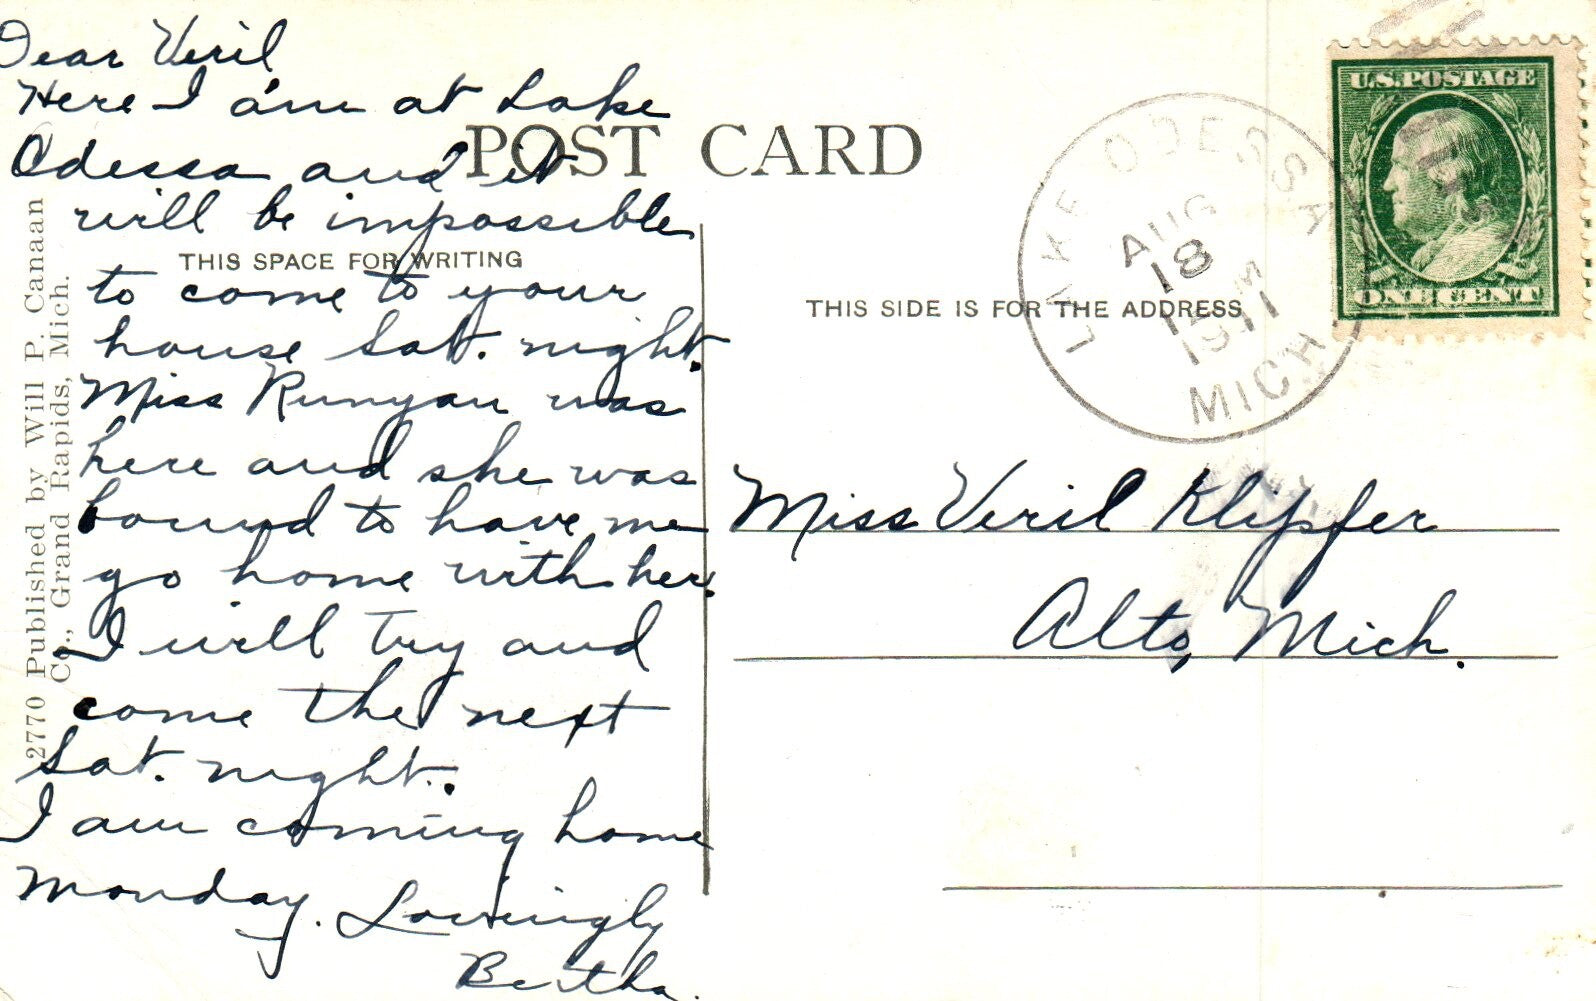 Dear Veril
Here I am at Lake
Odessa and it
will be impossible
to come to your
house Sat. night.
Miss Runyan was
here and she was
bound to have me
go home with her.
I will try and
come the next
Sat. night.
I am coming home
Monday. Lovingly
Bertha.
POST CARD
THIS SPACE FOR WRITING
THIS SIDE IS FOR THE ADDRESS
2770 Published by Will P. Canaan
Co., Grand Rapids, Mich.
LAKE ODESSA
AUG
18
1911
MICH.
U.S. POSTAGE
ONE CENT
Miss Veril Klipfer
Alto, Mich.